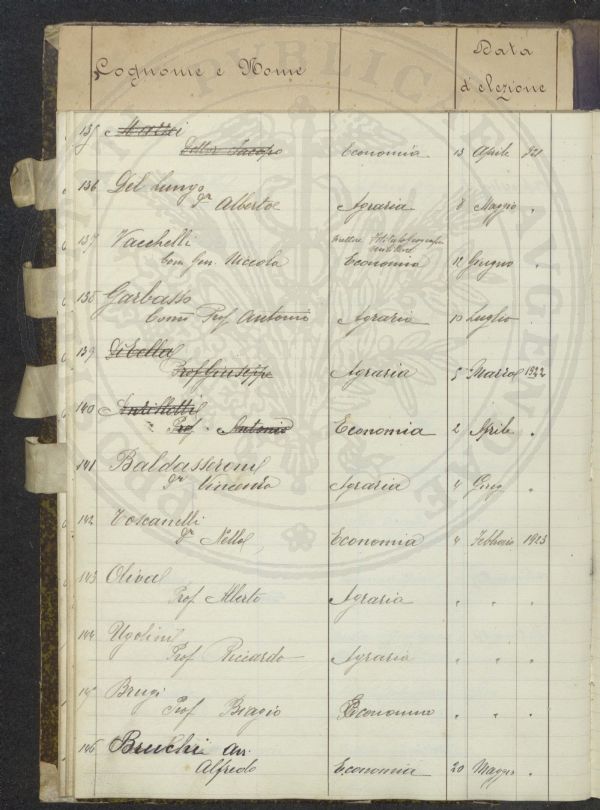 Cognome e Nome Data
d'elezione
135
Dottor Jacopo Economia 13 Aprile 921
136 Del Lungo
Dr Alberto Agraria 8 Maggio "
137 Vacchelli Direttore Istituto Geografico
Com. Gen. Niccola Economia 12 Giugno "
138 Garbasso
Comm Prof. Antonio Agraria 10 Luglio "
139 Di Bella
Prof Giuseppe Agraria 5 Marzo 1922
140
Prof. Antonio Economia 2 Aprile "
141 Baldasseroni
Dr Vincenzo Agraria 4 Giug "
142 Toscanelli
Dr Nello Economia 4 Febbraio 1923
143 Oliva
Prof Alberto Agraria " " "
144 Ugolini
Prof Riccardo Agraria " " "
145 Brugi
Prof Biagio Economia " " "
146 Bruchi Avv.
Alfredo Economia 20 Maggio "